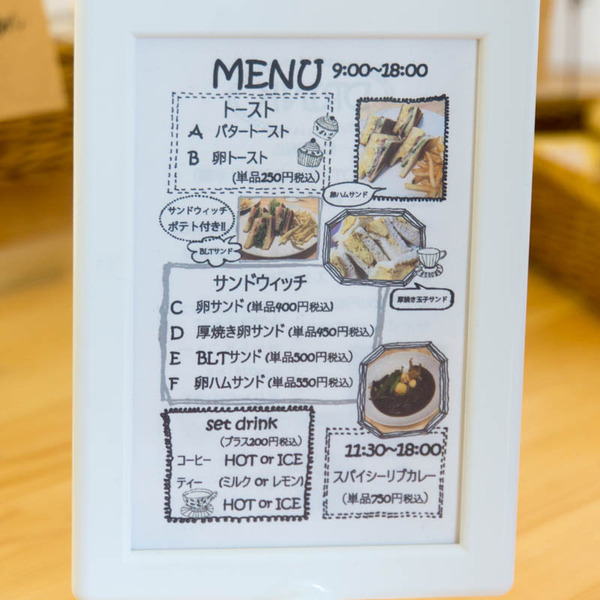 MENU 9:00~18:00
トースト
A バタートースト
B 卵トースト
(単品250円税込)
卵ハムサンド
サンドウィッチ
ポテト付き!!
BLTサンド
厚焼き玉子サンド
サンドウィッチ
C 卵サンド(単品400円税込)
D 厚焼き卵サンド(単品450円税込)
E BLTサンド(単品500円税込)
F 卵ハムサンド(単品550円税込)
set drink
(プラス200円税込)
コーヒー HOT or ICE
ティー (ミルク or レモン)
HOT or ICE
11:30~18:00
スパイシーリブカレー
(単品750円税込)